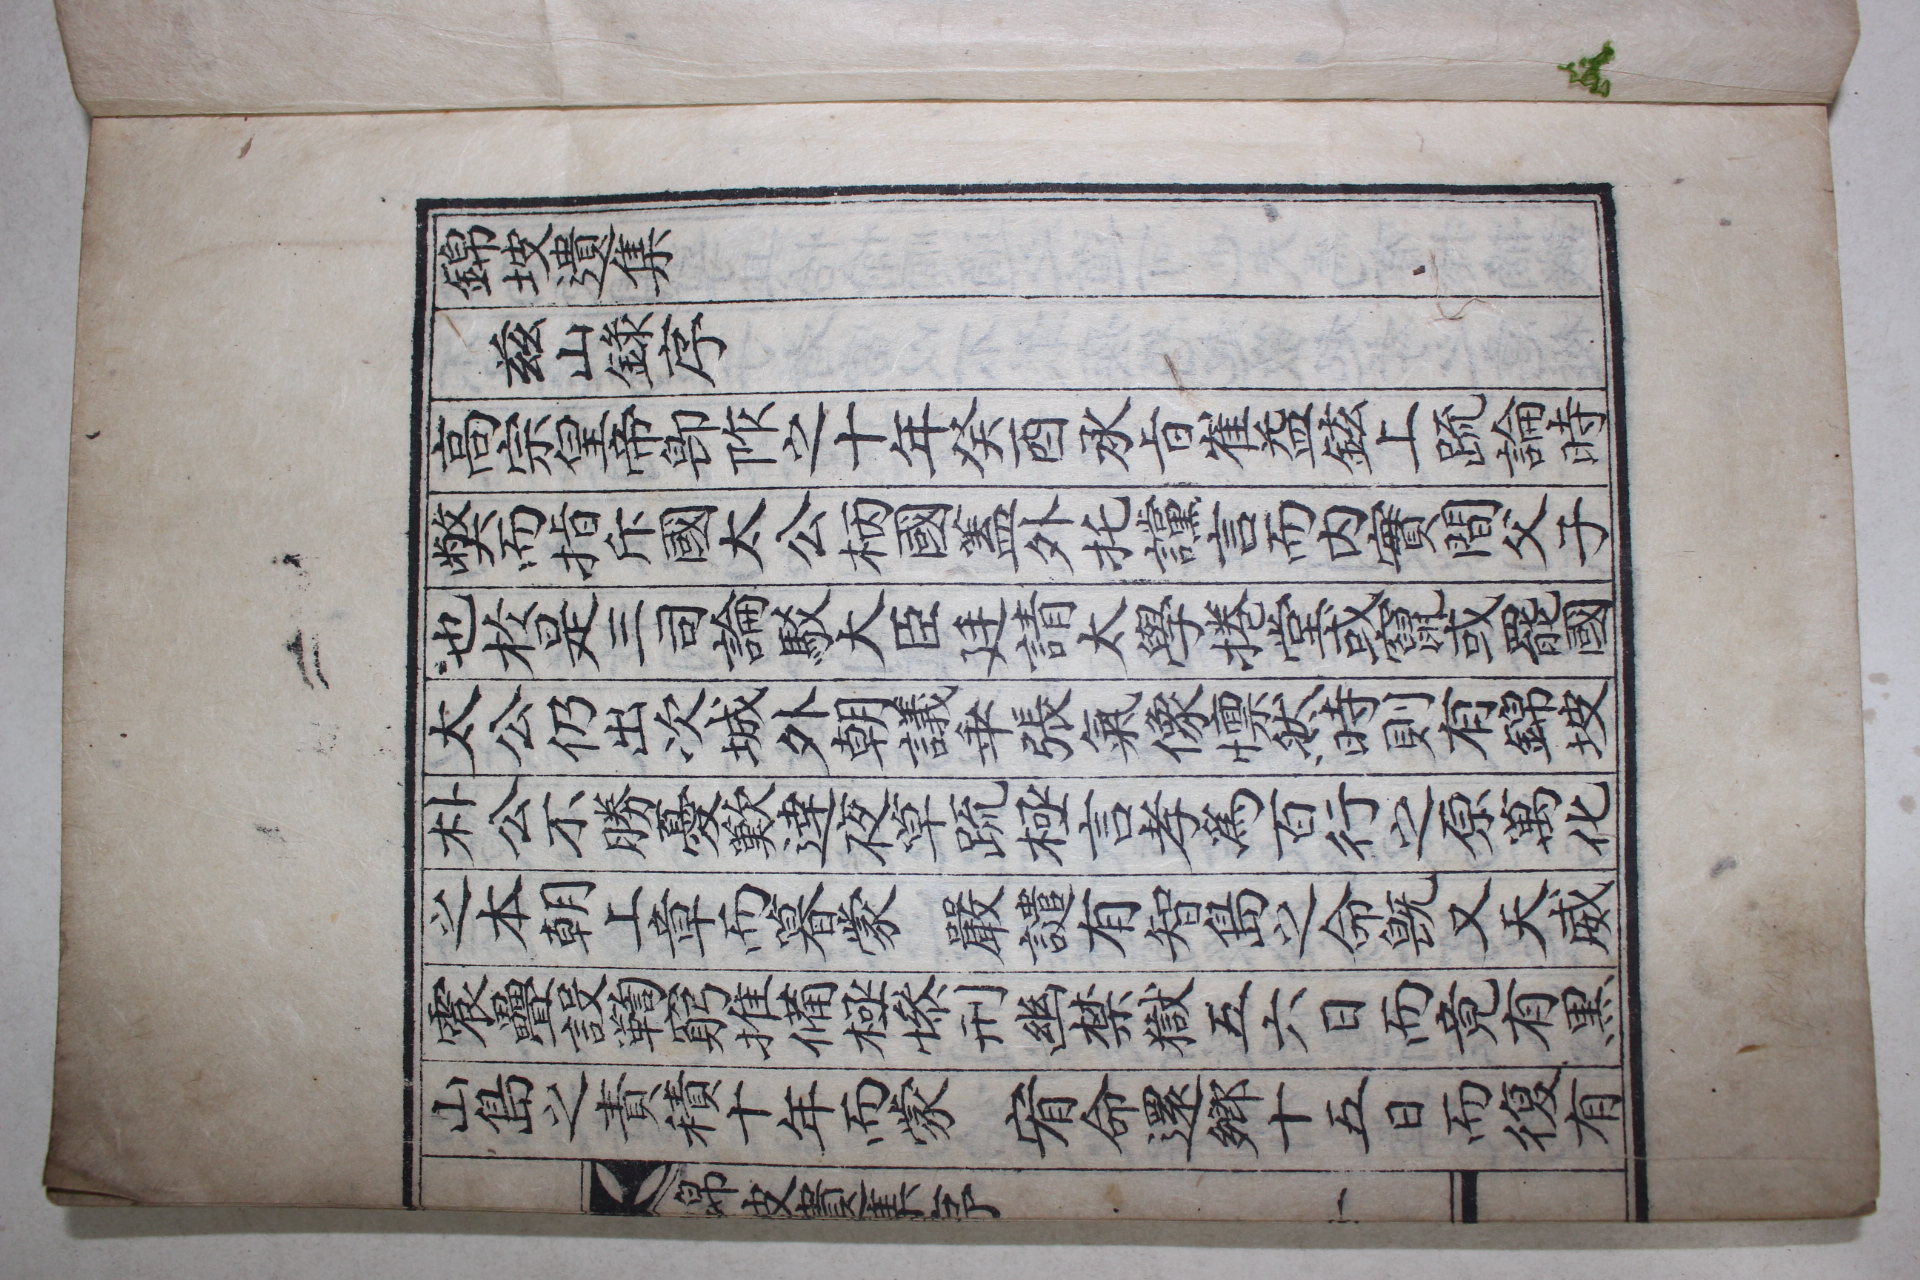 錦坡遺集
玆山錄序
高宗皇帝卽阼之十年癸酉承旨崔益鉉上疏論時
弊而指斥國太公柄國盖外托讜言而內實間父子
也於是三司論駁大臣廷請太學捲堂或竄或罷國
太公仍出次城外朝議乖張氣像懍然時則有錦坡
朴公不勝憂歎達夜草疏極言孝爲百行之原萬化
之本朝上章而暮蒙 嚴譴有智島之命旣又天威
震疊設鞫窮推備極慘刑幽禁獄五六日而竟有黑
山島之責積十年而蒙 宥命還鄉十五日而復有
錦坡遺集序 一